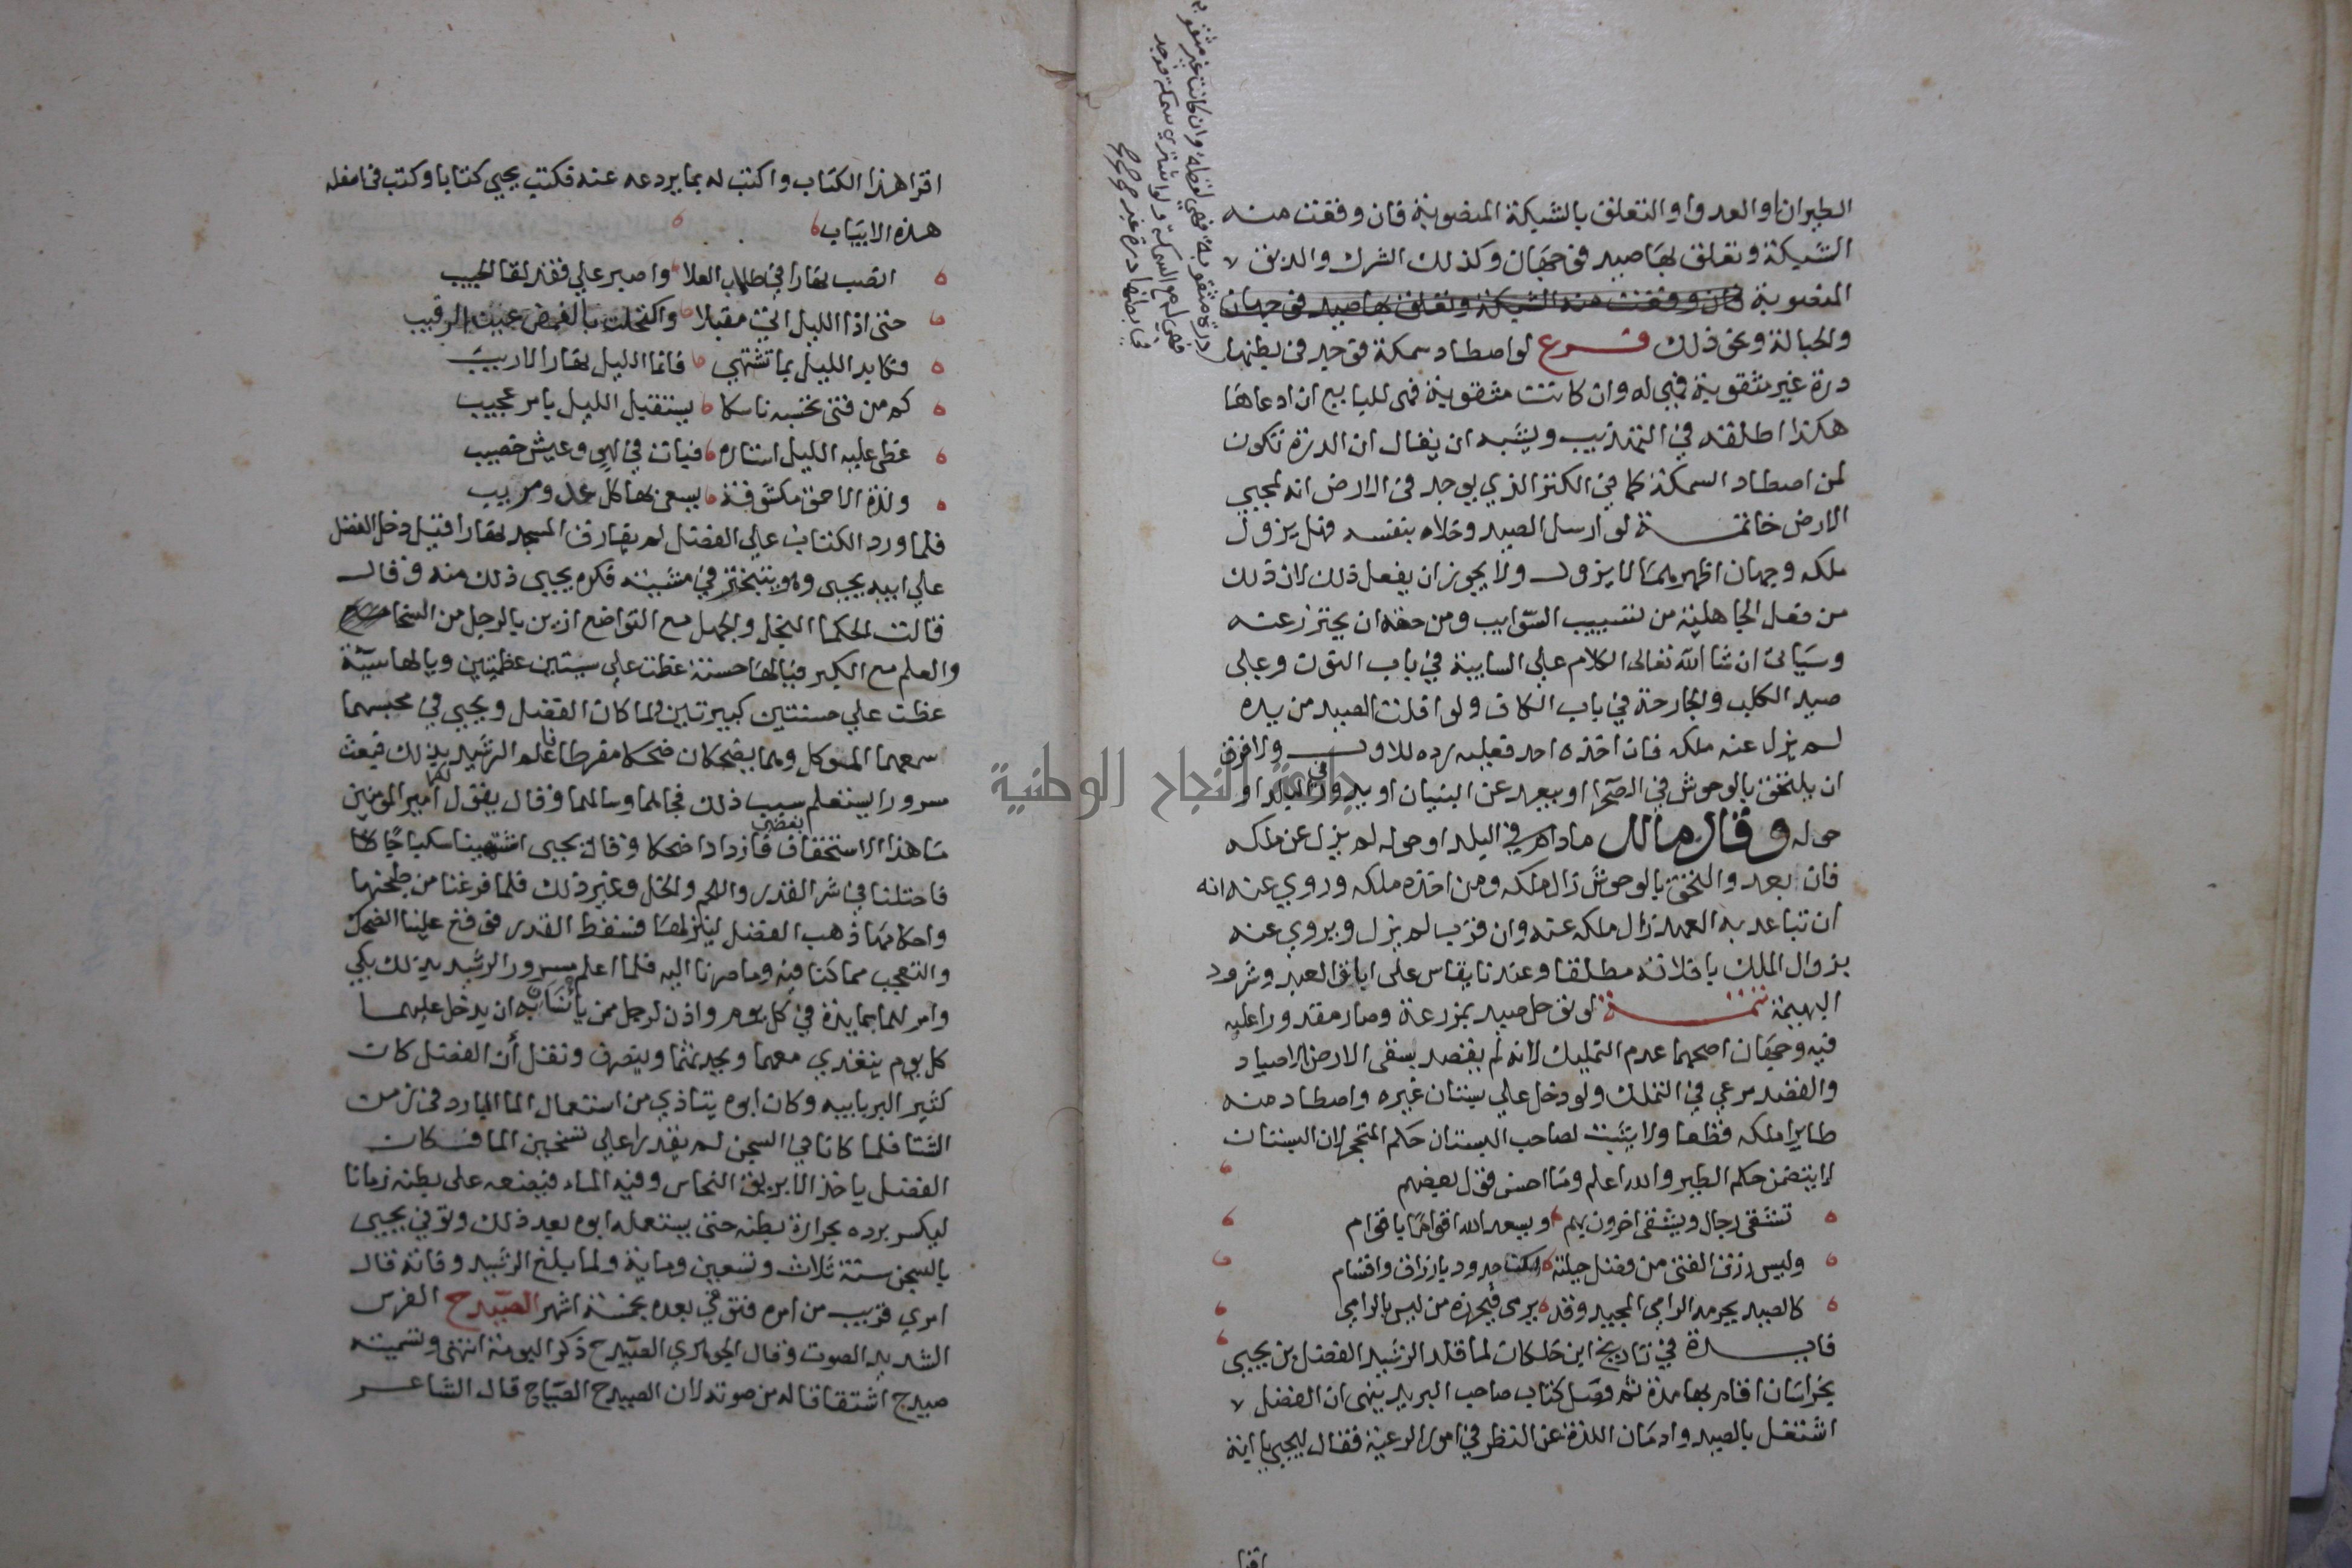 الطيران او العدو او التعلق بالشبكة المنصوبة فان وقعت منه
الشبكة وتعلق بها صيد فوجهان وكذلك الشرك والدبق لا
المنصوبة فان وقعت منه الشبكة وتعلق بها صيد فوجهان
والحبالة ونحو ذلك فرع لو اصطاد سمكة فوجد في بطنها
درة غير مثقوبة فهي له وان كانت مثقوبة فهى للبايع ان ادعاها
هكذا اطلقه في التهذيب ويشبه ان يقال ان الدرة تكون
لمن اصطاد السمكة كما في الكنز الذي يوجد في الارض انه لمحيي
الارض خاتمة لو ارسل الصيد وخلاه بنفسه فهل يزول
ملكه وجهان اظهرهما لا يزول ولا يجوز ان يفعل ذلك لان ذلك
من فعل الجاهلية من تسييب السوايب ومن حقه ان يحترز عنه
وسياتى ان شا الله تعالى الكلام علي السايبة في باب النون وعلى
صيد الكلب والجارحة في باب الكاف ولو افلت الصيد من يده
لم يزل عنه ملكه فان اخذه احد فعليه رده للاول ولا فرق
ان يلتحق بالوحوش في الصحرا او يبعد عن البنيان او يدور في البلد او
حوله وقال مالك مادام في البلد او حوله لم يزل عن ملكه
فان بعد والتحق بالوحوش زال ملكه ومن اخذه ملكه وروي عنه انه
ان تباعد به العهد زال ملكه عنه وان قرب لم يزل ويروي عنه
بزوال الملك بافلاته مطلقا وعندنا يقاس على اباق العبد وشرود
البهيمة تتمة لو توحل صيد بمزرعة وصار مقدورا عليه
فيه وجهان اصحهما عدم التمليك لانه لم يقصد بسقى الارض الاصياد
والقصد مرعي في التملك ولو دخل علي بستان غيره واصطاد منه
طايرا ملكه قطعا ولا يثبت لصاحب البستان حكم المتحجر لان البستان
لا يتضمن حكم الطير والله اعلم وما احسن قول بعضهم
تشقى رجال ويشقى اخرون بهم ويسعد الله اقواما باقوام
وليس رزق الفتى من فضل حيلته لكن جدود بارزاق واقسام
كالصيد يحرمه الرامي المجيد وقد يرمى فيحرزه من ليس بالرامي
فايدة في تاريخ ابن خلكان لما قلد الرشيد الفضل بن يحيى
بخراسان اقام بها مدة ثم وصل كتاب صاحب البريد ينهى ان الفضل لا
اشتغل بالصيد وادمان اللذة عن النظر في امور الرعية فقال ليحيي يا ابة
درة مثقوبة فهي لقطة وان كانت غير مثقوبة
فهي له مع السمكة ولو اشترى سمكة فوجد
في بطنها درة غير
اقرا هذا الكتاب واكتب له بما يردعه عنه فكتب يحيي كتابا وكتب في اسفله
هذه الابيات
انصب نهارا في طلاب العلا واصبر علي فقد لقا الحبيب
حتى اذا الليل اتى مقبلا واكتحلت بالغمض عين الرقيب
فكابد الليل بما تشتهي فانما الليل نهار الاريب
كم من فتى تحسبه ناسكا يستقبل الليل بامر عجيب
غطى عليه الليل استاره فبات في لهو وعيش خصيب
ولذة الاحمق مكشوفة يسعى بها كل عدو مريب
فلما ورد الكتاب علي الفضل لم يفارق المسجد نهارا قيل دخل الفضل
علي ابيه يحيى وهو يتبختر في مشيته فكره يحيى ذلك منه وقال
قالت الحكما البخل والجهل مع التواضع ازين بالرجل من السخا
والعلم مع الكبر فيالها حسنة غطت علي سيتين عظيمتين ويالها سيئة
غطت علي حسنتين كبيرتين ولما كان الفضل ويحيي في محبسهما
سمعهما الموكل وهما يضحكان ضحكا مفرطا فاعلم الرشيد بذلك فبعث
مسرورا يستعلم سبب ذلك فجاهما وسالهما وقال يقول لكما امير المومنين
ما هذا الاستخفاف بغضبي فازدادا ضحكا وقال يحيى اشتهينا سكباجا
فاحتلنا في شرا القدر واللحم والخل وغير ذلك فلما فرغنا من طبخها
واحكامها ذهب الفضل لينزلها فسقط القدر فوقع علينا الضحك
والتعجب مما كنا فيه وما صرنا اليه فلما اعلم مسرور الرشيد بذلك بكي
وامر لهما بمايدة في كل يوم واذن لرجل ممن يأنسان به ان يدخل عليهما
كل يوم يتغدي معهما ويحدثهما وينصرف ونقل أن الفضل كان
كثير البر بابيه وكان ابوه يتاذي من استعمال الما البارد في زمن
الشتا فلما كانا في السجن لم يقدرا علي تسخين الما فكان
الفضل ياخذ الابريق النحاس وفيه الماء فيضعه على بطنه زمانا
ليكسر برده بحرارة بطنه حتى يستعمله ابوه بعد ذلك وتوفي يحيى
بالسجن سنة ثلاث وتسعين وماية ولما بلغ الرشيد وفاته قال
امري قريب من امره فتوفي بعده بخمسة اشهر الصيدح الفرس
الشديد الصوت وقال الجوهري الصيدح ذكر البومة انتهى وتسميته
صيدح اشتقاقا له من صوته لان الصيدح الصياح قال الشاعر